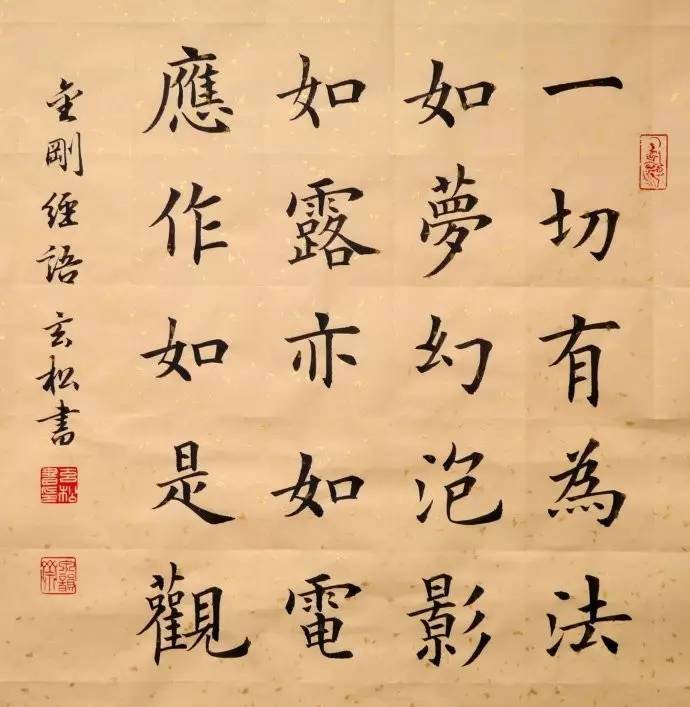 一切有為法
如夢幻泡影
如露亦如電
應作如是觀
金剛經語 玄松書